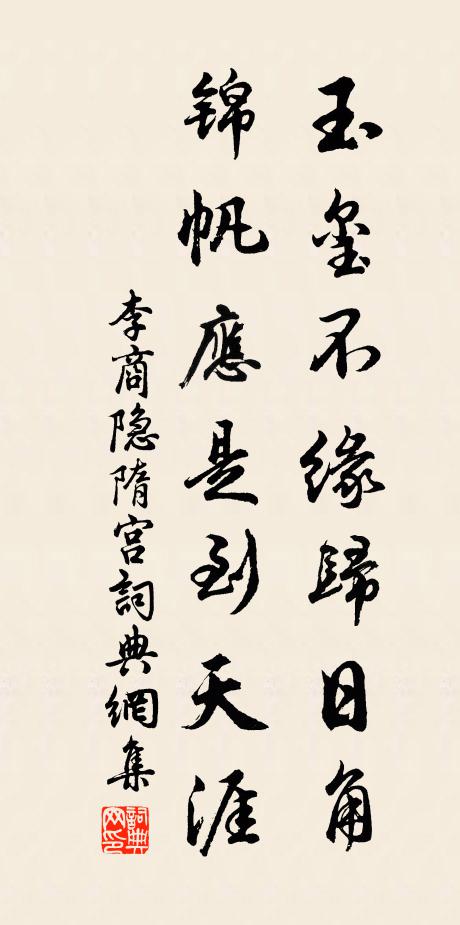 玉璽不緣歸日角
锦帆應是到天涯
李商隐隋宫詞典網集
詞典網印